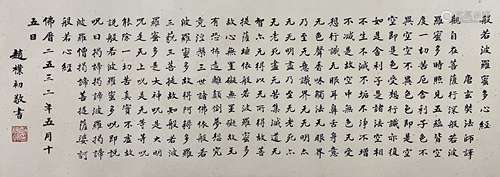 般若波羅蜜多心經
唐玄奘法師譯
觀自在菩薩行深般若波
羅蜜多時照見五蘊皆空
度一切苦厄舍利子色不
異空空不異色色即是空
空即是色受想行識亦復
如是舍利子是諸法空相
不生不滅不垢不淨不增
不減是故空中無色無受
想行識無眼耳鼻舌身意
無色聲香味觸法無眼界
乃至無意識界無無明亦
無無明盡乃至無老死亦
無老死盡無苦集滅道無
智亦無得以無所得故菩
提薩埵依般若波羅蜜多
故心無罣礙無罣礙故無
有恐怖遠離顛倒夢想究
竟涅槃三世諸佛依般若
波羅蜜多故得阿耨多羅
三藐三菩提故知般若波
羅蜜多是大神咒是大明
咒是無上咒是無等等咒
能除一切苦真實不虛故
說般若波羅蜜多咒即說
咒曰揭諦揭諦波羅揭諦
波羅僧揭諦菩提薩婆訶
般若心經
佛曆二五三二年五月十
五日
趙樸初敬書